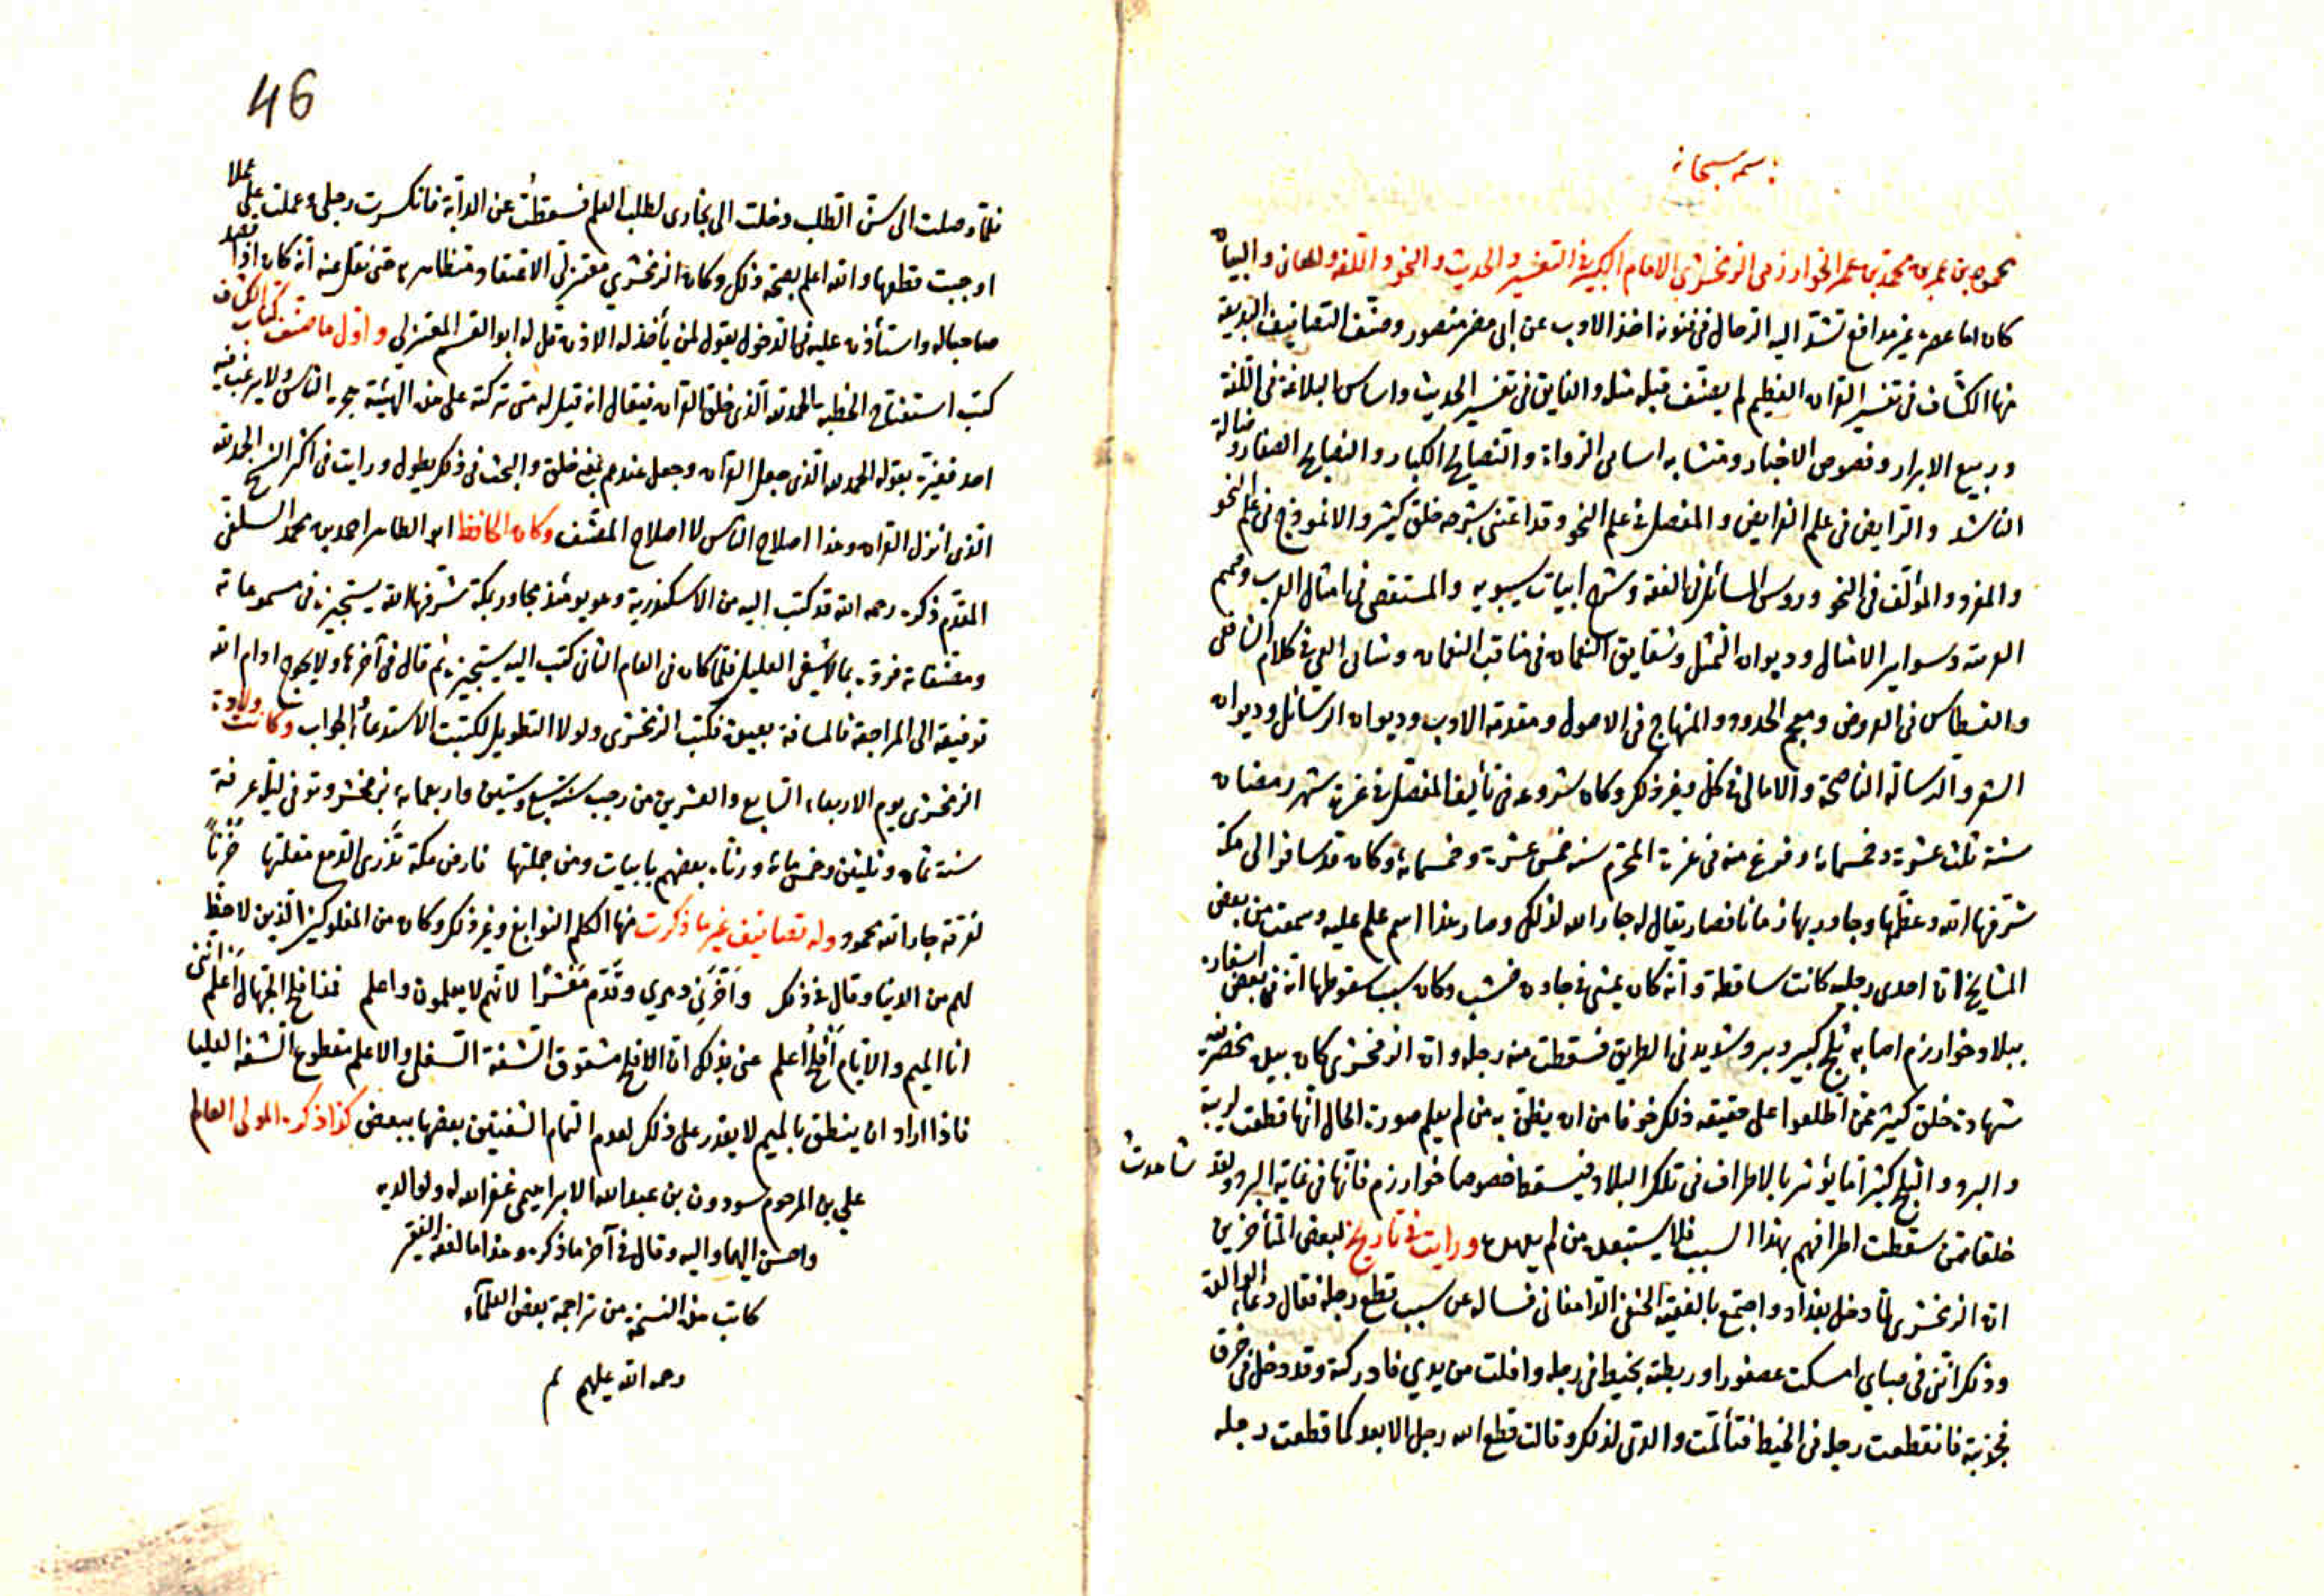 باسمه سبحانه
محمود بن عمر بن محمد بن عمر الخوارزمي الزمخشري الامام الكبير في التفسير والحديث والنحو واللغة والمعاني والبيان
كان اما عصره غير مدافع تشد اليه الرحال في فنونه اخذ الادب عن ابي مضر منصور وصنف التصانيف البديعة
منها الكشاف في تفسير القرآن العظيم لم يصنف قبله مثله والفايق في تفسير الحديث واساس البلاغة في اللغة
وربيع الابرار وفصوص الاخبار ومتشابه اسامى الرواة والنصايح الكبار والنصايح الصغار وضالة
الناشد والرايض في علم الفرايض والمفصل في علم النحو وقد اعتنى بشرحه خلق كثير والانموذج في علم النحو
والمفرد والمؤلف في النحو وروس المسائل في الفقه وشرح ابيات سيبويه والمستقصى في امثال العرب وصميم
العربية وسواير الامثال وديوان التمثل وشقايق النعمان في مناقب النعمان وشافى العي في كلام الشافعى
والقسطاس في العروض ومعجم الحدود والمنهاج في الاصول ومقدمة الادب وديوان الرسائل وديوان
الشعر والرسالة الناصحة والامالى في كل وغير ذلك وكان شروعه في تأليف المفصل في غرة شهر رمضان
سنة ثلث عشرة وخمسمايه وفرغ منه في غرة المحرم سنه خمس عشرة وخمسمايه وكان قد سافر الى مكة
شرفها الله وعظمها وجاور بها زمانا فصار يقال له جار الله لذلك وصار هذا اسم علم عليه وسمعت من بعض
المشايخ ان احدى رجليه كانت ساقطة وانه كان يمشى في جاون خشب وكان سبب سقوطها انه في بعض اسفاره
ببلاد خوارزم اصابه ثلج كبير وبرد شديد في الطريق فسقطت منه رجله وان الزمخشرى كان بيده محضر فيه
شهادة خلق كثير ممن اطلعوا على حقيقه ذلك خوفا من ان يظن به من لم يعلم صورة الحال انها قطعت لريبة
والبرد والثلج كثيرا ما يؤثر بالاطراف في تلك البلاد فيسقط خصوصا خوارزم فانها في غاية البرد ولقد شاهدت
خلقا ممن سقطت اطرافهم بهذا السبب فلا يستبعده من لم يعهده ورايت في تاريخ لبعض المتأخرين
ان الزمخشرى لما دخل بغداد واجتمع بالفقيه الحنفى الدامغانى فساله عن سبب قطع رجله فقال دعاء الوالدة
وذلك انني في صباي امسكت عصفورا وربطته بخيط في رجله وافلت من يدي فادركته وقد دخل في خرق
فجذبته فانقطعت رجله في الخيط فتألمت والدتى لذلك وقالت قطع الله رجل الابعد كما قطعت رجله
46
فلما وصلت الى سن الطلب دخلت الى بخارى لطلب العلم فسقطت عن الدابة فانكسرت رجلي وعملت علي عملا
اوجبت قطعها والله اعلم بصحة ذلك وكان الزمخشري معتزلي الاعتقاد متظاهرا به حتى نقل عنه انه كان اذا قصد
صاحبا له واستأذن عليه في الدخول يقول لمن يأخذ له الاذن قل له ابو القسم المعتزلي واول ما صنف كتاب الكشاف
كتب استفتاح الخطبة الحمد لله الذي خلق القرآن فيقال انه قيل له متى تركته على هذه الهيئة هجره الناس ولا يرغب فيه
احد فغيره بقوله الحمد لله الذى جعل القرآن وجعل عندهم بمعنى خلق والبحث في ذلك يطول ورايت في اكثر النسخ الحمد لله
الذى انزل القرآن وهذا اصلاح الناس لا اصلاح المصنف وكان الحافظ ابو الطاهر احمد بن محمد السلفي
المقدم ذكره رحمه الله قد كتب اليه من الاسكندرية وهو يومئذ مجاور بمكة شرفها الله يستجيزه في مسموعاته
ومصنفاته فرد بما لا يشفى العليل فلما كان في العام الثانى كتب اليه يستجيزه ثم قال في آخرها ولا يحوج ادام الله
توفيقه الى المراجعة فالمسافة بعيدة فكتب الزمخشرى ولولا التطويل لكتبت الاستدعاء والجواب وكانت ولادة
الزمخشرى يوم الاربعاء السابع والعشرين من رجب سنة سبع وستين واربعمايه بزمخشر وتوفى ليلة عرفة
سنة ثمان وثلثين وخمس ماية ورثاه بعضهم بابيات ومن جملتها فارض مكة تذرى الدمع مقلتها حزناً
لفرقة جار الله محمود وله تصانيف غير ما ذكرت منها الكلم النوابغ وغير ذلك وكان من المفلوكين الذين لا حظ
لهم من الدنيا وقال في ذلك وأخرني دهري وقدم معشرا لانهم لا يعلمون واعلم فمذ افلح الجهال اعلم انني
انا الميم والايام افلح اعلم عنى بذلك ان الافلح مشقوق الشفة السفلى والاعلم مقطوع الشفة العليا
فاذا اراد ان ينطق بالميم لا يقدر على ذلك لعدم التمام الشفتين بعضها ببعض كذا ذكره المولى العالم
علي بن المرحوم سودون بن عبد الله الابراهيمى غفر الله له ولوالديه
واحسن اليهما واليه وقال في آخر ما ذكره وهذا ما لفقه الفقير
كاتب هذه النسخة من تراجمة بعض العلماء
رحمه الله عليهم م